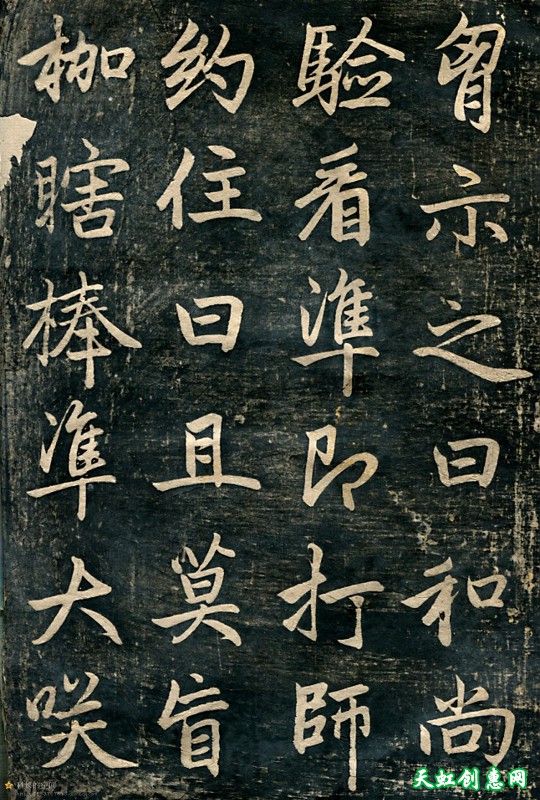 胷示之曰和尚
驗看準即打師
約住曰且莫盲
枷瞎棒準大咲
天虹创惠网